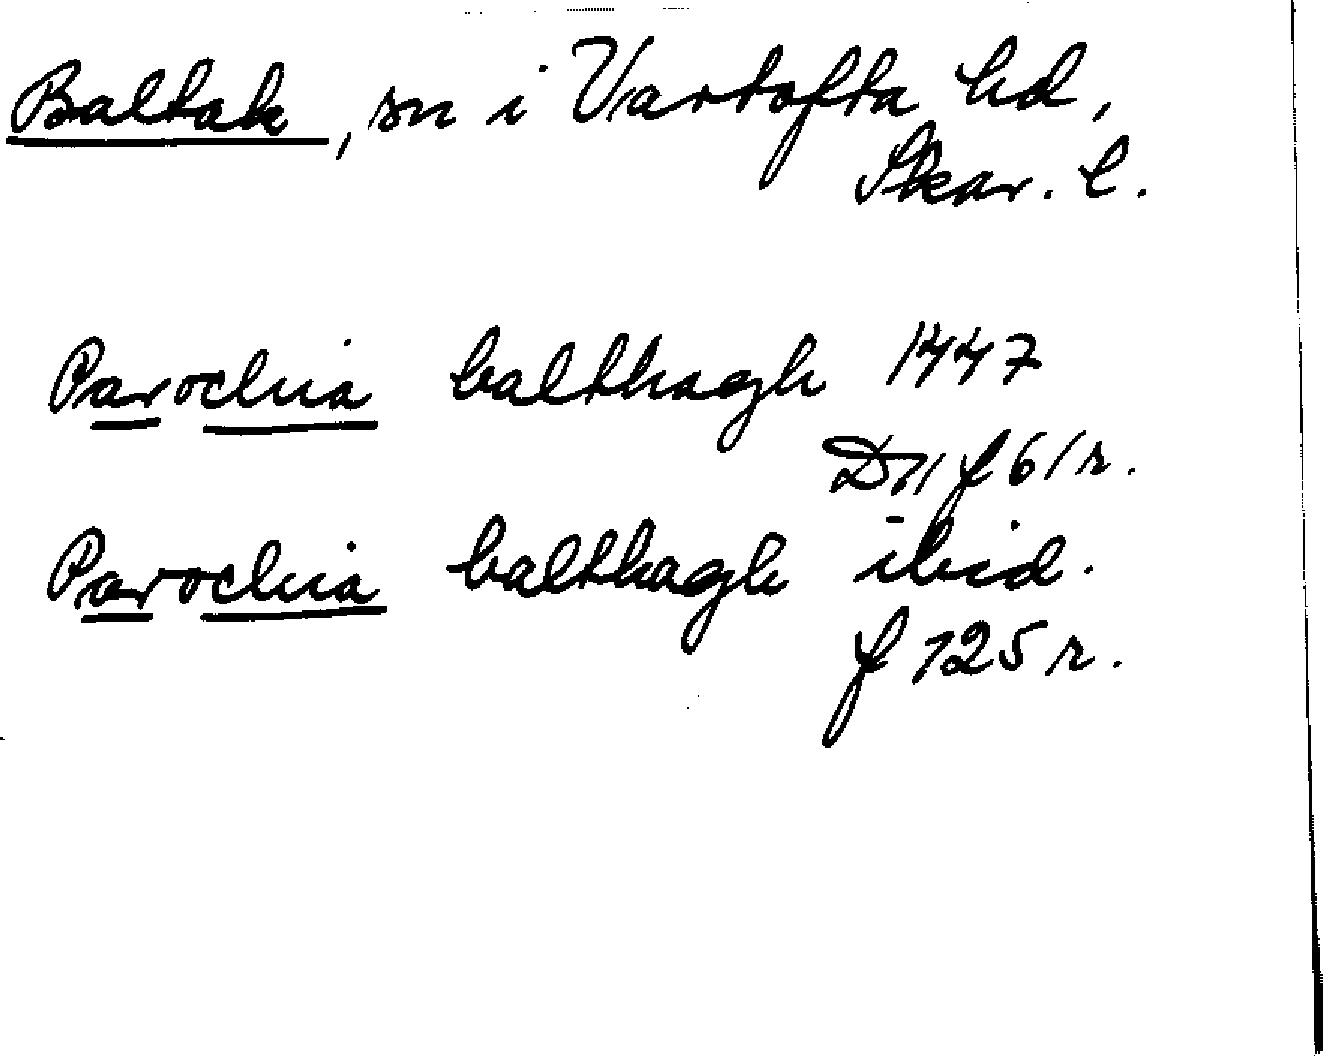 Baltak, sn i Vartofta hd,
Skar. l.
Parochia balthagh 1447
D 11 f 61 r.
Parochia balthagh ibid.
f 125 r.